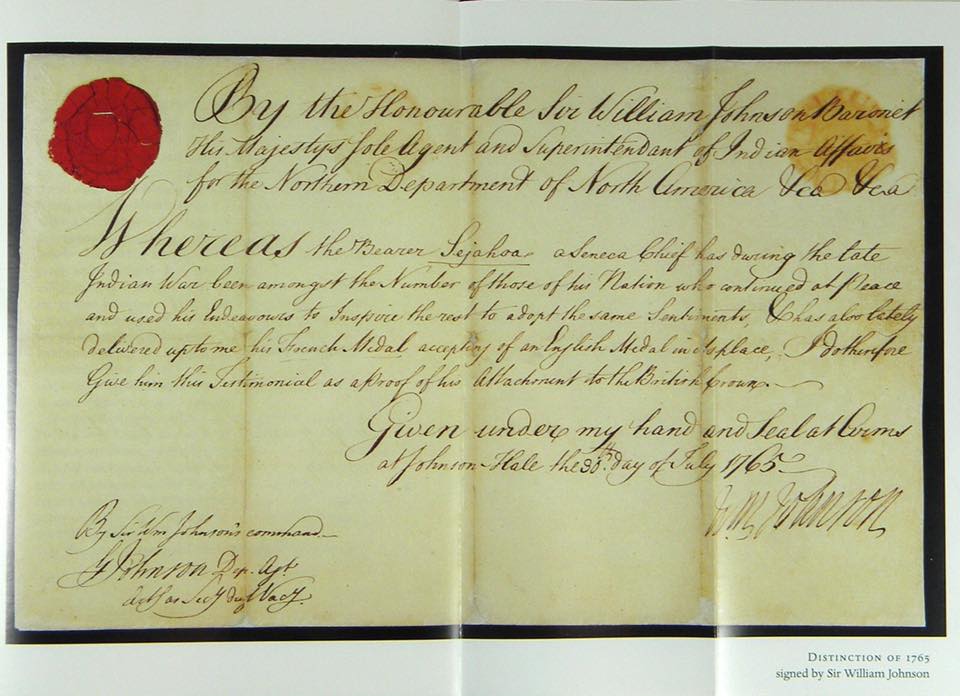 By the Honourable Sir William Johnson Baronet
His Majestys Sole Agent and Superintendant of Indian Affairs
for the Northern Department of North America &ca &ca
Whereas the Bearer Sejahoa a Seneca Chief has during the late
Indian War been amongst the Number of those of his Nation who continued at Peace
and used his Endeavours to Inspire the rest to adopt the same Sentiments, & has also lately
delivered up to me his French Medal, accepting of an English Medal in its place, I do therefore
Give him this Testimonial as a Proof of his Attachment to the British Crown.
Given under my hand and Seal at Arms
at Johnson Hale the 30th. day of July 1765
Wm Johnson
By Sir Wm Johnson's command
G Johnson Dep. Agt.
as Secy
DISTINCTION OF 1765
signed by Sir William Johnson